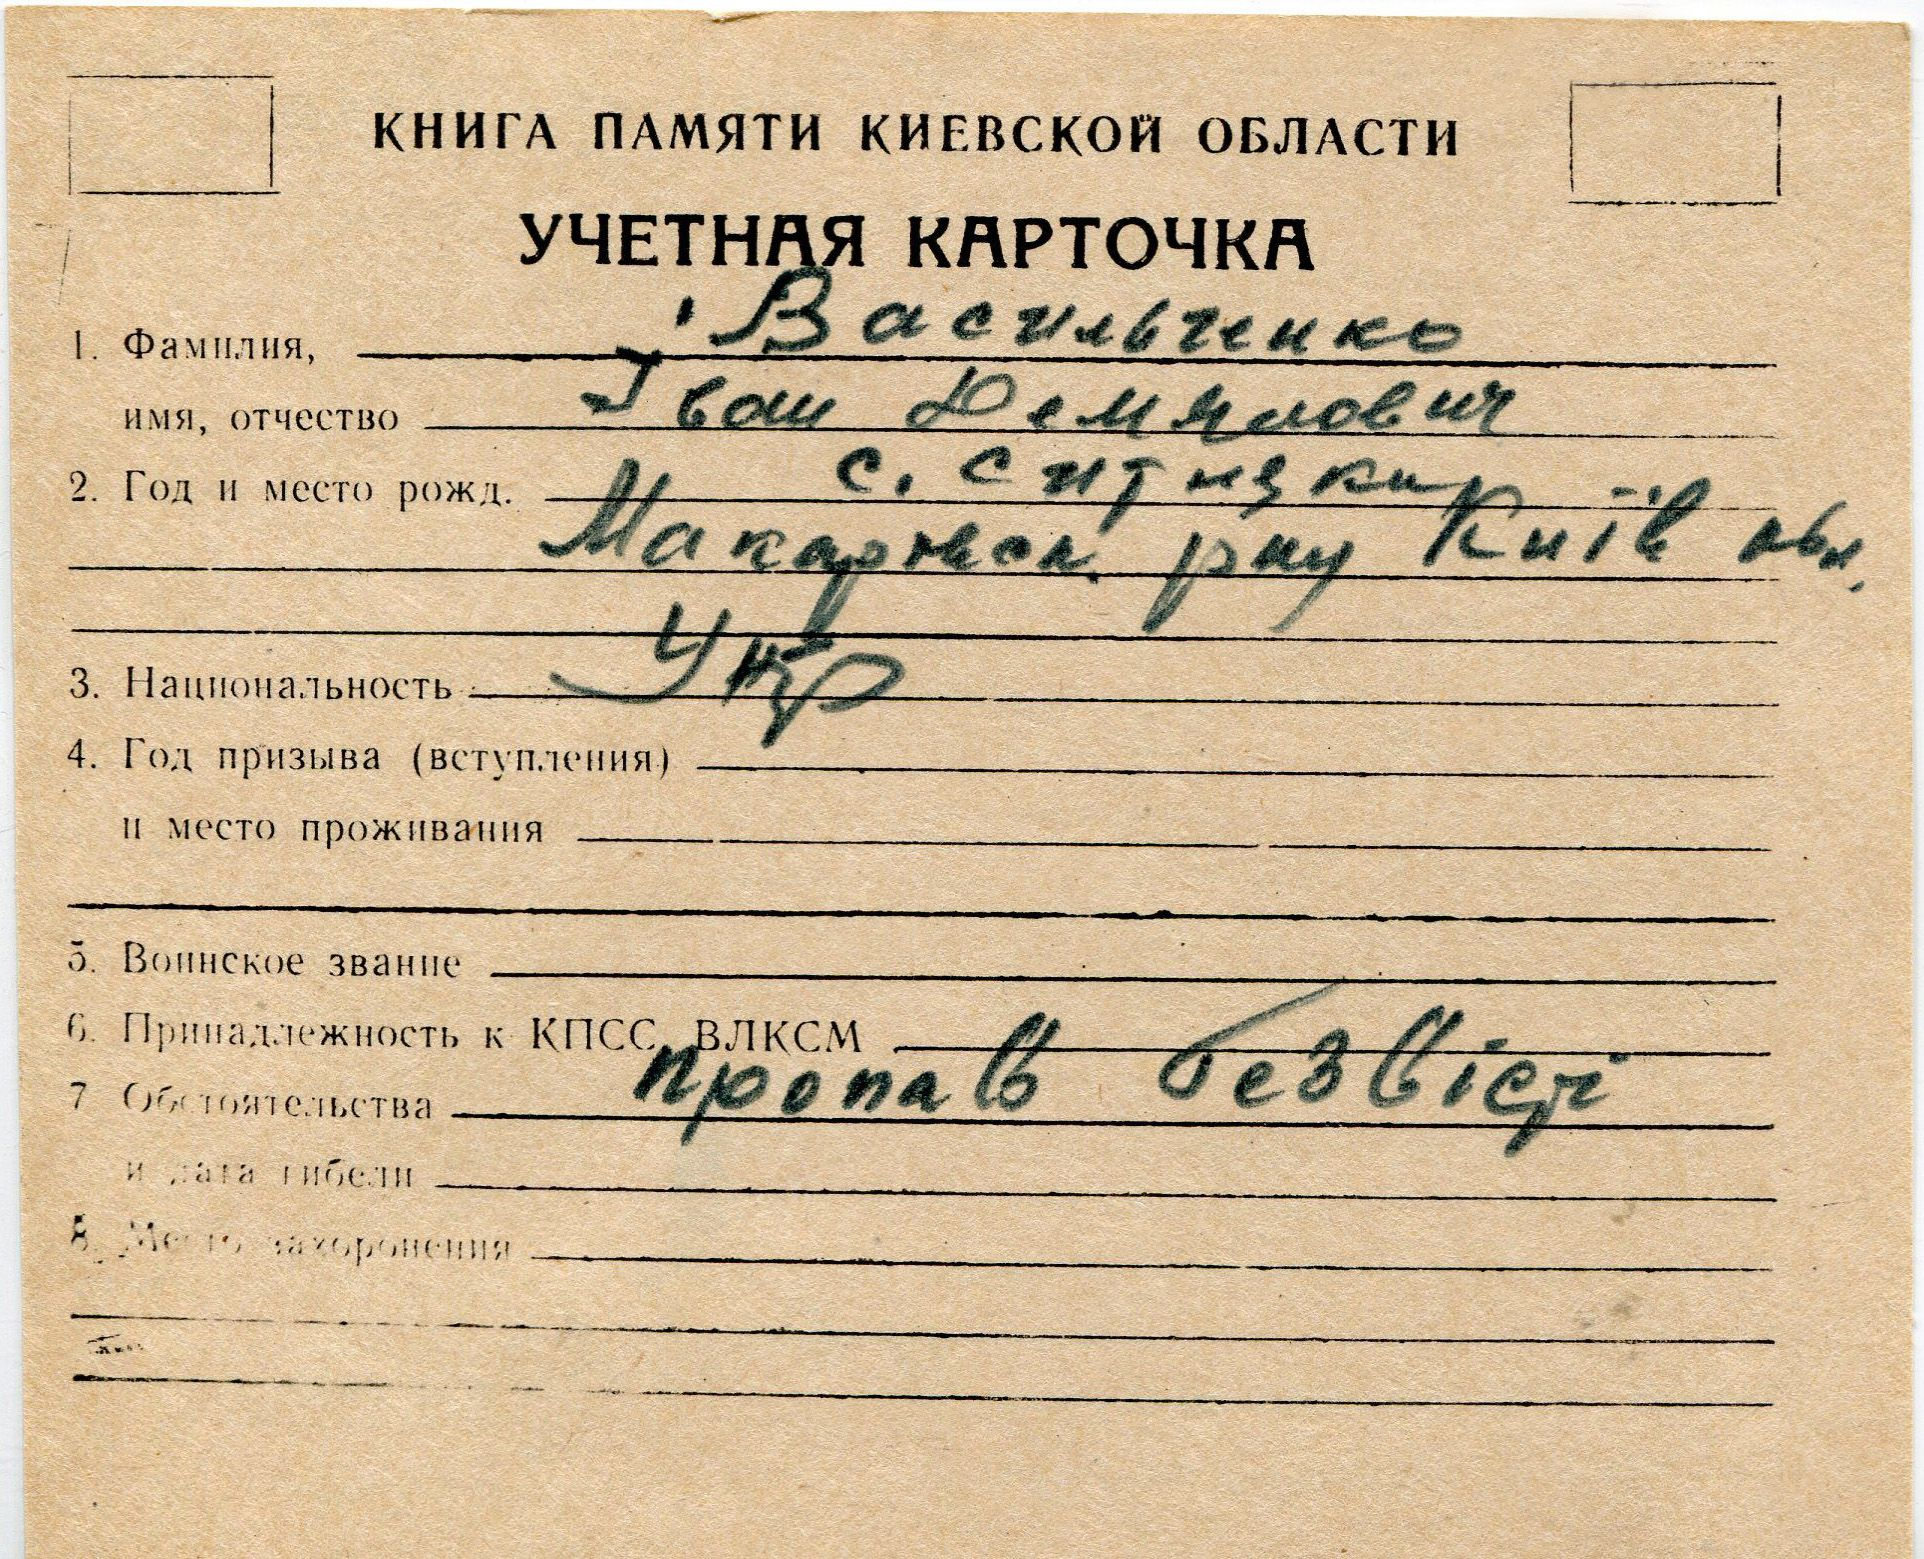 КНИГА ПАМЯТИ КИЕВСКОЙ ОБЛАСТИ
УЧЕТНАЯ КАРТОЧКА
1. Фамилия, Васильченко
имя, отчество Іван Демянович
2. Год и место рожд. с. Ситняки
Макаровск. рну Київ обл.
3. Национальность Укр
4. Год призыва (вступления)
и место проживания
5. Воинское звание
6. Принадлежность к КПСС, ВЛКСМ
7 Обстоятельства пропав безвісті
и дата гибели
8. Место захоронения